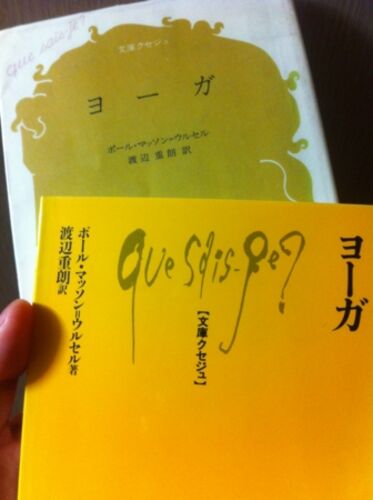 que sais-je?
文庫クセジュ
ヨーガ
ポール・マッソン=ウルセル
渡辺重朗訳
ヨーガ
que sais-je?
【文庫クセジュ】
ポール・マッソン=ウルセル著
渡辺重朗訳